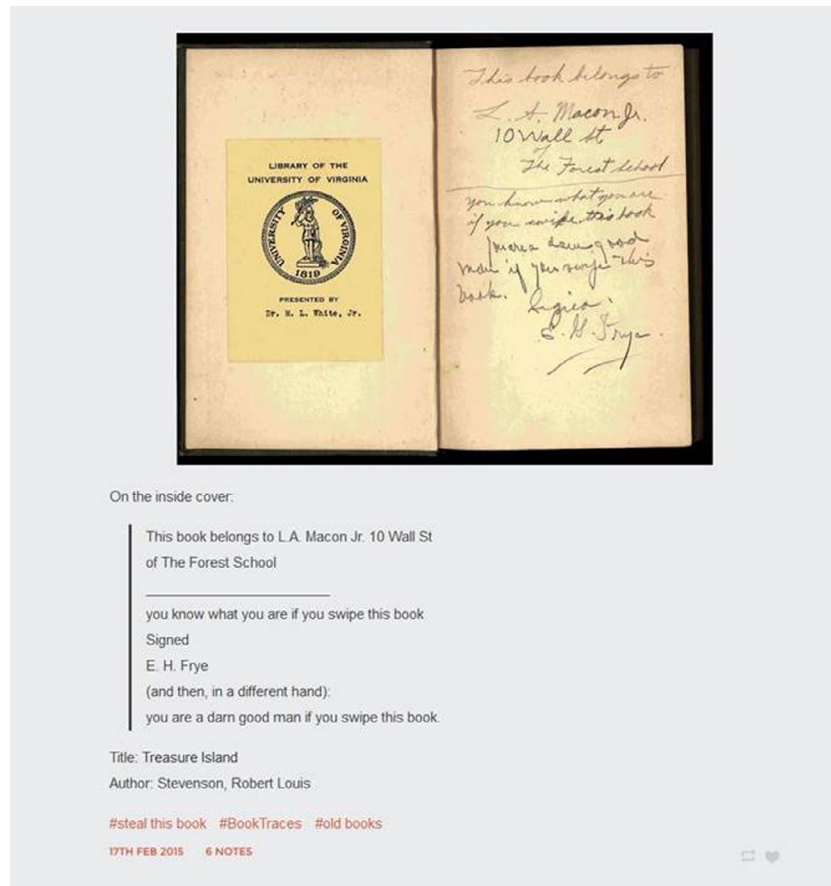 LIBRARY OF THE
UNIVERSITY OF VIRGINIA
UNIVERSITY OF VIRGINIA
1819
PRESENTED BY
Dr. H. L. White, Jr.
This book belongs to
L. A. Macon Jr.
10 Wall St
of
The Forest School
you know what you are
if you swipe this book
you're a darn good
man if you swipe this
book.
Signed
E. H. Frye.
On the inside cover:
This book belongs to L.A. Macon Jr. 10 Wall St
of The Forest School
you know what you are if you swipe this book
Signed
E. H. Frye
(and then, in a different hand):
you are a darn good man if you swipe this book.
Title: Treasure Island
Author: Stevenson, Robert Louis
#steal this book #BookTraces #old books
17TH FEB 2015 6 NOTES